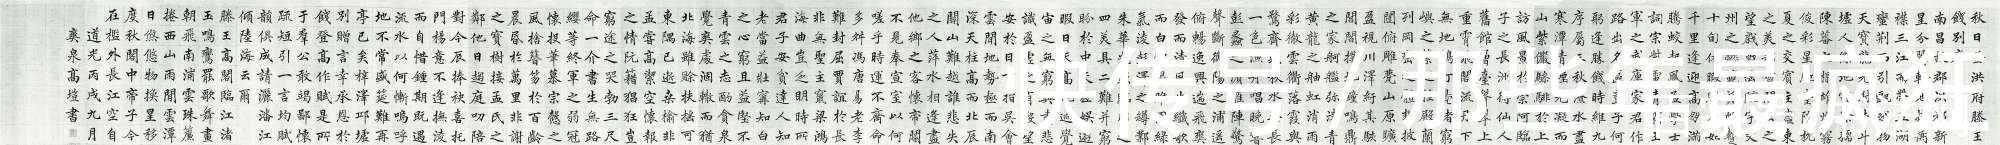 秋日登洪府滕王閣
餞別序
南昌故郡洪都新府
星分翼軫地接衡廬
襟三江而帶五湖控
蠻荊而引甌越物華
天寶龍光射牛斗之
墟人傑地靈徐孺下
陳蕃之榻雄州霧列
俊彩星馳臺隍枕夷
夏之交賓主盡東南
之美都督閻公之雅
望棨戟遙臨宇文新
州之懿範襜帷暫駐
十旬休暇勝友如雲
千里逢迎高朋滿座
騰蛟起鳳孟學士之
詞宗紫電清霜王將
軍之武庫家君作宰
路出名區童子何知
躬逢勝餞時維九月
序屬三秋潦水盡而
寒潭清煙光凝而暮
山紫儼驂騑於上路
訪風景於崇阿臨帝
子之長洲得仙人之
舊館層臺聳翠上出
重霄飛閣流丹下臨
無地鶴汀鳧渚窮島
嶼之縈迴桂殿蘭宮
列岡巒之體勢披繡
闥俯雕甍山原曠其
盈視川澤紆其駭矚
閭閻撲地鐘鳴鼎食
之家舸艦彌津青雀
黃龍之軸虹銷雨霽
彩徹雲衢落霞與孤
鶩齊飛秋水共長天
一色漁舟唱晚響窮
彭蠡之濱雁陣驚寒
聲斷衡陽之浦遙襟
俯暢逸興遄飛爽籟
發而清風生纖歌凝
而白雲遏睢園綠竹
氣凌彭澤之樽鄴水
朱華光照臨川之筆
四美具二難并窮睇
眄於中天極娛遊於
暇日天高地迥覺宇
宙之無窮興盡悲來
識盈虛之有數望長
安於日下指吳會於
雲間地勢極而南溟
深天柱高而北辰遠
關山難越誰悲失路
之人萍水相逢盡是
他鄉之客懷帝閽而
不見奉宣室以何年
嗟乎時運不齊命途
多舛馮唐易老李廣
難封屈賈誼於長沙
非無聖主竄梁鴻於
海曲豈乏明時所賴
君子安貧達人知命
老當益壯寧知白首
之心窮且益堅不墜
青雲之志酌貪泉而
覺爽處涸轍而猶懽
北海雖賒扶搖可接
東隅已逝桑榆非晚
孟嘗高潔空懷報國
之情阮籍猖狂豈效
窮途之哭勃三尺微
命一介書生無路請
纓等終軍之弱冠有
懷投筆慕宗愨之長
風捨簪笏於百齡奉
晨昏於萬里非謝家
之寶樹接孟氏之芳
鄰他日趨庭叨陪鯉
對今晨捧袂喜托龍
門楊意不逢撫凌雲
而自惜鍾期既遇奏
流水以何慚嗚呼勝
地不常盛筵難再蘭
亭已矣梓澤邱墟臨
別贈言幸承恩於偉
餞登高作賦是所望
于羣公敢竭鄙懷恭
疏短引一言均賦四
韻俱成請灑潘江各
傾陸海云爾
滕王高閣臨江渚佩
玉鳴鸞罷歌舞畫棟
朝飛南浦雲珠簾暮
捲西山雨閒雲潭影
日悠悠物換星移幾
度秋閣中帝子今何
在檻外長江空自流
道光丙戌九月
奚泉高塏書
快传号/那些最疯狂